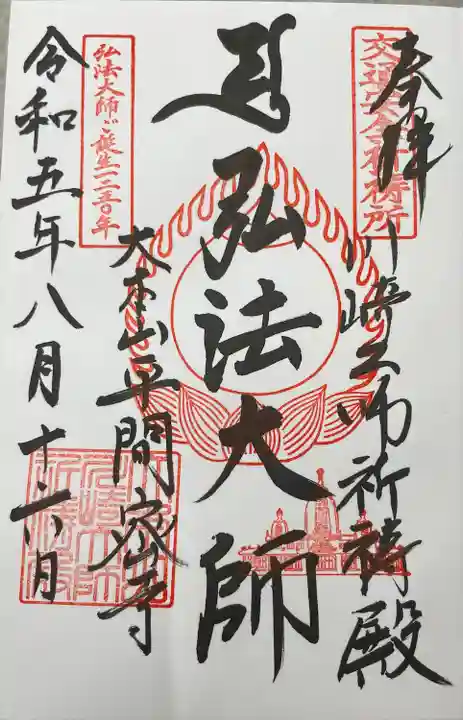 交通安全祈祷所
奉拝
川崎大師祈祷殿
弘法大師
弘法大師ご誕生一二五〇年
大本山平間密寺
令和五年八月十六日